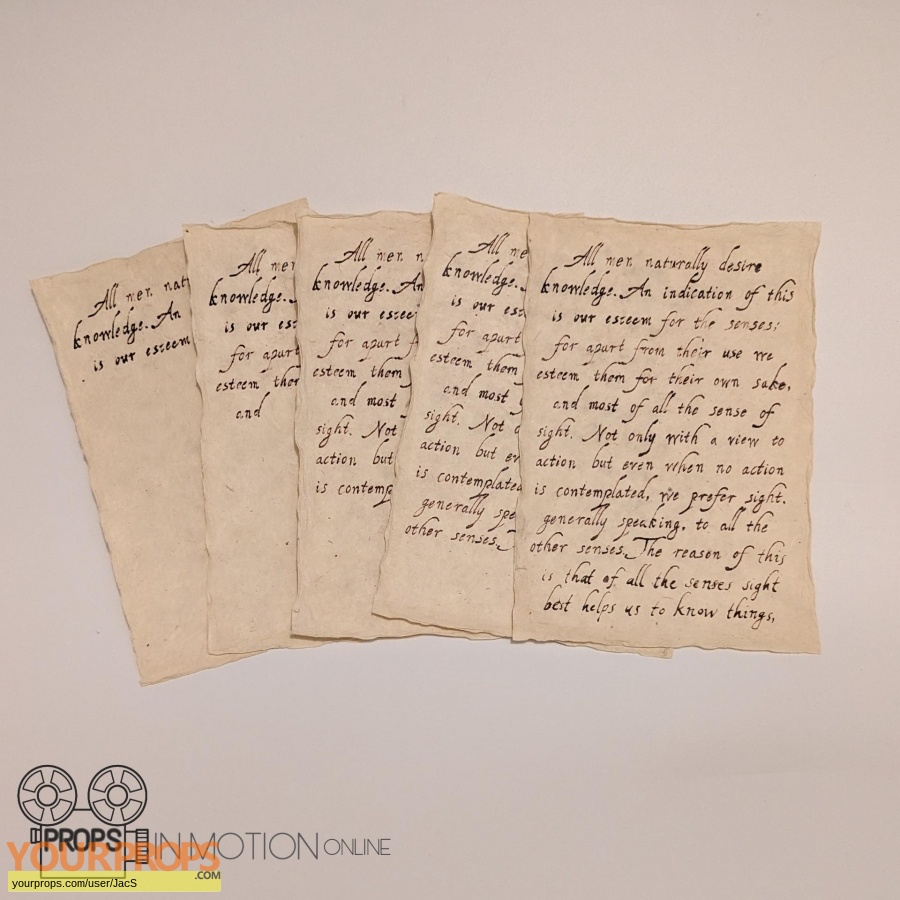 All men nat
knowledge. An
is our esteem
All men
knowledge.
is our est
for apart
esteem them
and
All men n
knowledge. An
is our estee
for apart f
esteem them
and most
sight. Not
action but
is contemp
All me
knowledge.
is our est
for apart
esteem them
and most
sight. Not o
action but ev
is contemplated
generally spe
other senses.
All men naturally desire
knowledge. An indication of this
is our esteem for the senses;
for apart from their use we
esteem them for their own sake,
and most of all the sense of
sight. Not only with a view to
action but even when no action
is contemplated, we prefer sight.
generally speaking. to all the
other senses. The reason of this
is that of all the senses sight
best helps us to know things,
PROPS IN MOTION ONLINE
YOURPROPS
.COM
yourprops.com/user/JacS